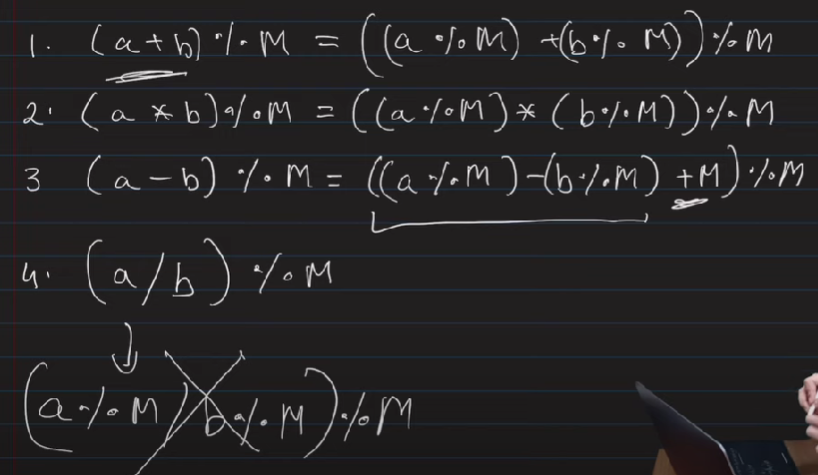 1. (a+b) % M = ((a % M) + (b % M)) % M
2. (a * b) % M = ((a % M) * (b % M)) % M
3 (a - b) % M = ((a % M) - (b % M) + M) % M
4. (a/b) % M
(a % M / b % M) % M